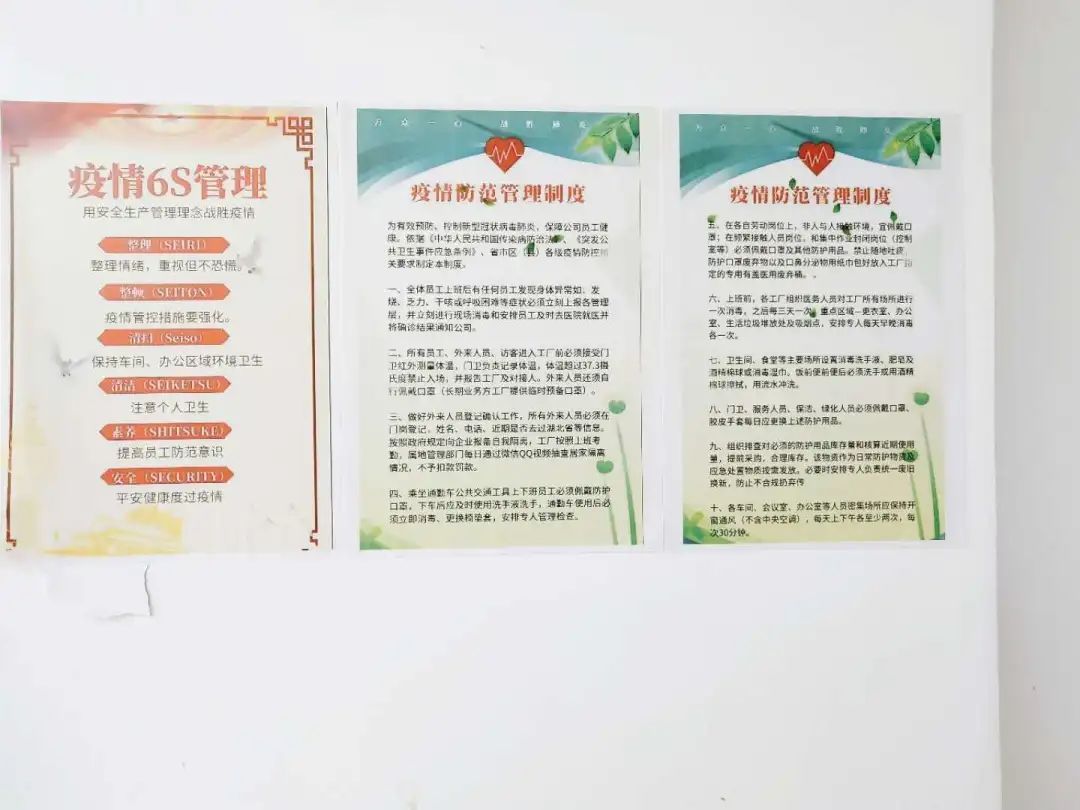 疫情6S管理
用安全生产管理理念战胜疫情
整理（SEIRI）
整理情绪，重视但不恐慌。
整顿（SEITON）
疫情管控措施要强化。
清扫（Seiso）
保持车间、办公区域环境卫生
清洁（SEIKETSU）
注意个人卫生
素养（SHITSUKE）
提高员工防范意识
安全（SECURITY）
平安健康度过疫情
万众一心 战胜肺炎
疫情防范管理制度
为有效预防、控制新型冠状病毒肺炎，保障公司员工健
康。依据《中华人民共和国传染病防治法》、《突发公
共卫生事件应急条例》、省市区（县）各级疫情防控相
关要求制定本制度。
一、全体员工上班后有任何员工发现身体异常如、发
烧、乏力、干咳或呼吸困难等症状必须立刻上报各管理
层，并立刻进行现场消毒和安排员工及时去医院就医并
将确诊结果通知公司。
二、所有员工、外来人员、访客进入工厂前必须接受门
卫红外测量体温，门卫负责记录体温，体温超过37.3摄
氏度禁止入场，并报告工厂及对接人。外来人员还须自
行佩戴口罩（长期业务方工厂提供临时预备口罩）。
三、做好外来人员登记确认工作，所有外来人员必须在
门岗登记，姓名、电话、近期是否去过湖北省等信息。
按照政府规定向企业报备自我隔离，工厂按照上班考
勤，属地管理部门每日通过微信QQ视频抽查居家隔离
情况，不予扣款罚款。
四、乘坐通勤车公共交通工具上下班员工必须佩戴防护
口罩，下车后应及时使用洗手液洗手，通勤车使用后必
须立即消毒、更换椅垫套，安排专人管理检查。
万众一心 战胜肺炎
疫情防范管理制度
五、在各自劳动岗位上，非人与人接触环境，宜佩戴口
罩；在频繁接触人员岗位，和集中作业封闭岗位（控制
室等）必须佩戴口罩及其他防护用品。禁止随地吐痰，
防护口罩废弃物以及口鼻分泌物用纸巾包好放入工厂指
定的专用有盖医用废弃桶。
六、上班前，各工厂组织医务人员对工厂所有场所进行
一次消毒，之后每三天一次，重点区域—更衣室、办公
室、生活垃圾堆放处及吸烟点，安排专人每天早晚消毒
各一次。
七、卫生间、食堂等主要场所设置消毒洗手液、肥皂及
酒精棉球或消毒湿巾。饭前便前便后必须洗手或用酒精
棉球擦拭，用流水冲洗。
八、门卫、服务人员、保洁、绿化人员必须佩戴口罩、
胶皮手套每日应更换上述防护用品。
九、组织排查对必须的防护用品库存量和核算近期使用
量，提前采购，合理库存。该物资作为日常防护物资及
应急处置物质按需发放。必要时安排专人负责统一废旧
换新，防止不合规扔弃传
十、各车间、会议室、办公室等人员密集场所应保持开
窗通风（不含中央空调），每天上下午各至少两次，每
次30分钟。